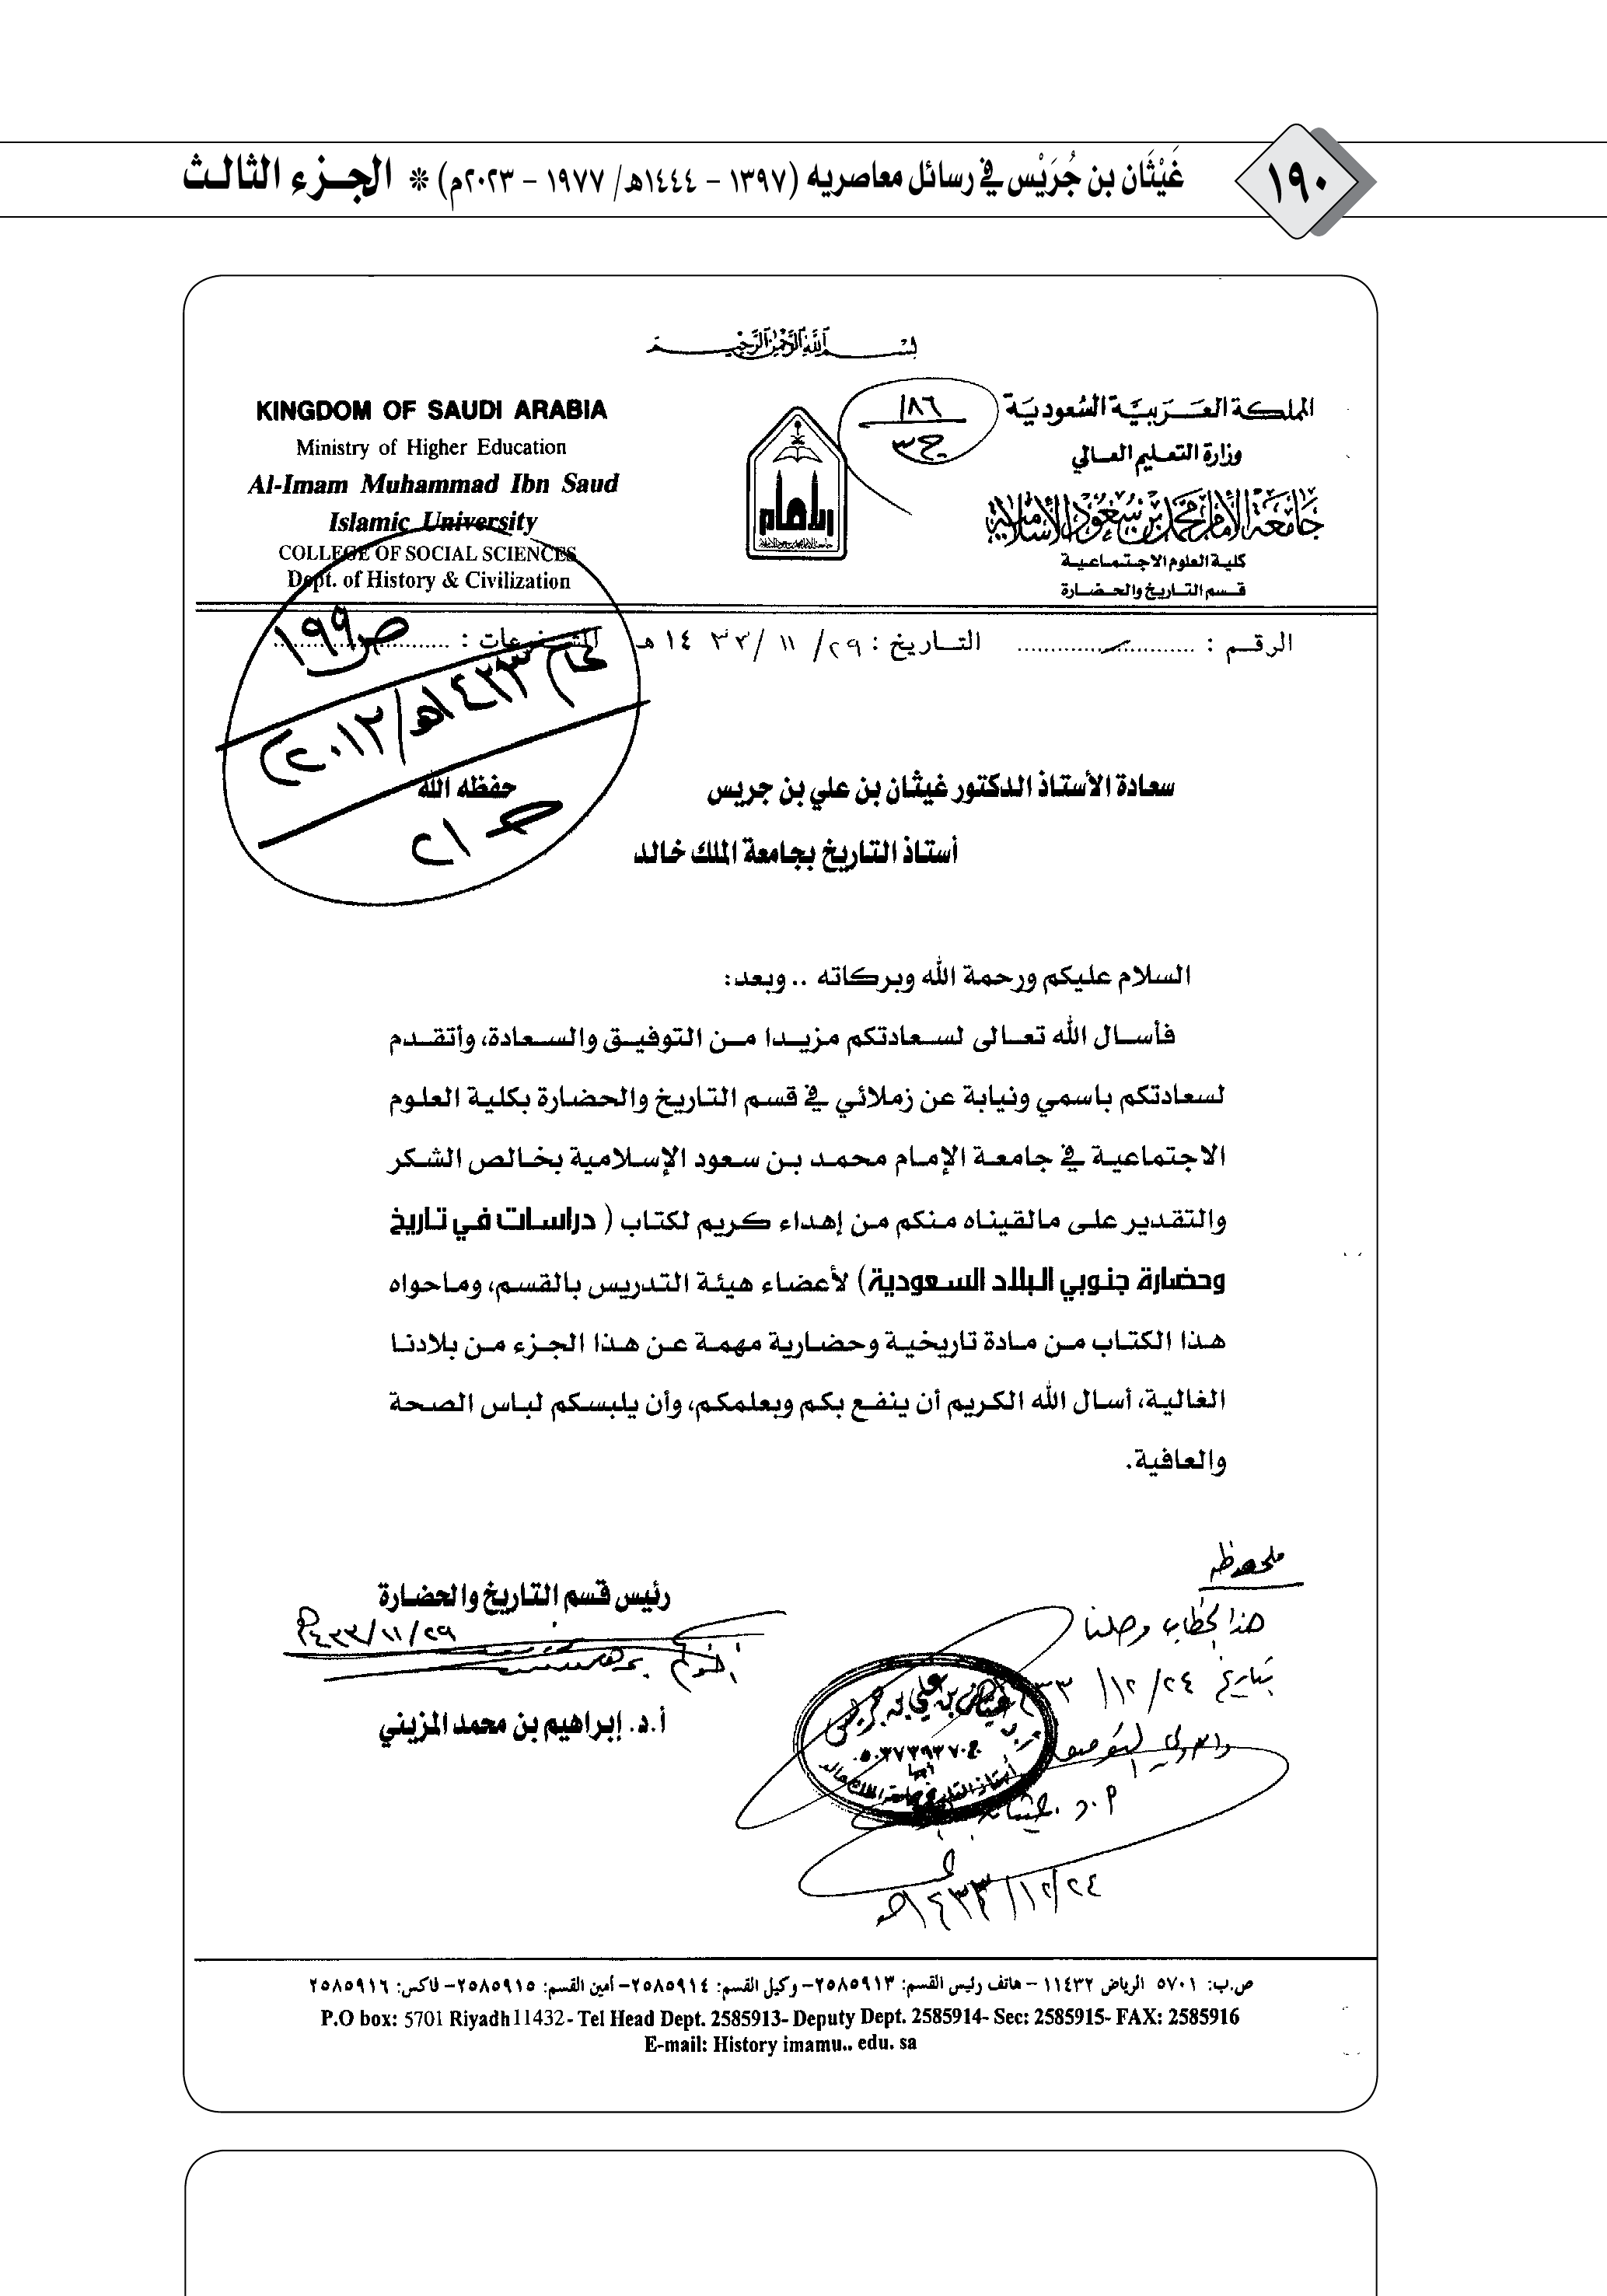 ١٩٠
غَيْثَان بن جُرَيْس في رسائل معاصريه (١٣٩٧ - ١٤٤٤هـ/ ١٩٧٧ - ٢٠٢٣م) * الجزء الثالث
بسم الله الرحمن الرحيم
المملكة العربية السعودية
وزارة التعليم العالي
جامعة الإمام محمد بن سعود الإسلامية
كلية العلوم الاجتماعية
قسم التاريخ والحضارة
١٨٦
ج٣
KINGDOM OF SAUDI ARABIA
Ministry of Higher Education
Al-Imam Muhammad Ibn Saud
Islamic University
COLLEGE OF SOCIAL SCIENCES
Dept. of History & Civilization
الرقم : التاريخ : ٢٩/ ١١ /٣٣ ١٤ هـ المشفوعات :
ص١٩٩
عام ١٤٣٣هـ/٢٠١٢م
حـ ٢١
سعادة الأستاذ الدكتور غيثان بن علي بن جريس حفظه الله
أستاذ التاريخ بجامعة الملك خالد
السلام عليكم ورحمة الله وبركاته .. وبعد:
فأسال الله تعالى لسعادتكم مزيدا من التوفيق والسعادة، وأتقدم
لسعادتكم باسمي ونيابة عن زملائي في قسم التاريخ والحضارة بكلية العلوم
الاجتماعية في جامعة الإمام محمد بن سعود الإسلامية بخالص الشكر
والتقدير على مالقيناه منكم من إهداء كريم لكتاب ( دراسات في تاريخ
وحضارة جنوبي البلاد السعودية) لأعضاء هيئة التدريس بالقسم، وماحواه
هذا الكتاب من مادة تاريخية وحضارية مهمة عن هذا الجزء من بلادنا
الغالية، أسال الله الكريم أن ينفع بكم وبعلمكم، وأن يلبسكم لباس الصحة
والعافية.
رئيس قسم التاريخ والحضارة
٢٩/١١/١٤٣٣هـ
أ.د. إبراهيم بن محمد المزيني
ملحوظة
هذا الخطاب وصلنا
بتاريخ ٢٤/ ١٢/ ٣٣
أ.د. غيثان بن علي بن جريس
أبها
أستاذ التاريخ بجامعة الملك خالد
أ.د. غيثان
٢٤/١٢/١٤٣٣هـ
ص.ب: ٥٧٠١ الرياض ١١٤٣٢ – هاتف رئيس القسم: ٢٥٨٥٩١٣– وكيل القسم: ٢٥٨٥٩١٤– أمين القسم: ٢٥٨٥٩١٥– فاكس: ٢٥٨٥٩١٦
P.O box: 5701 Riyadh11432- Tel Head Dept. 2585913- Deputy Dept. 2585914- Sec: 2585915- FAX: 2585916
E-mail: History imamu.. edu. sa